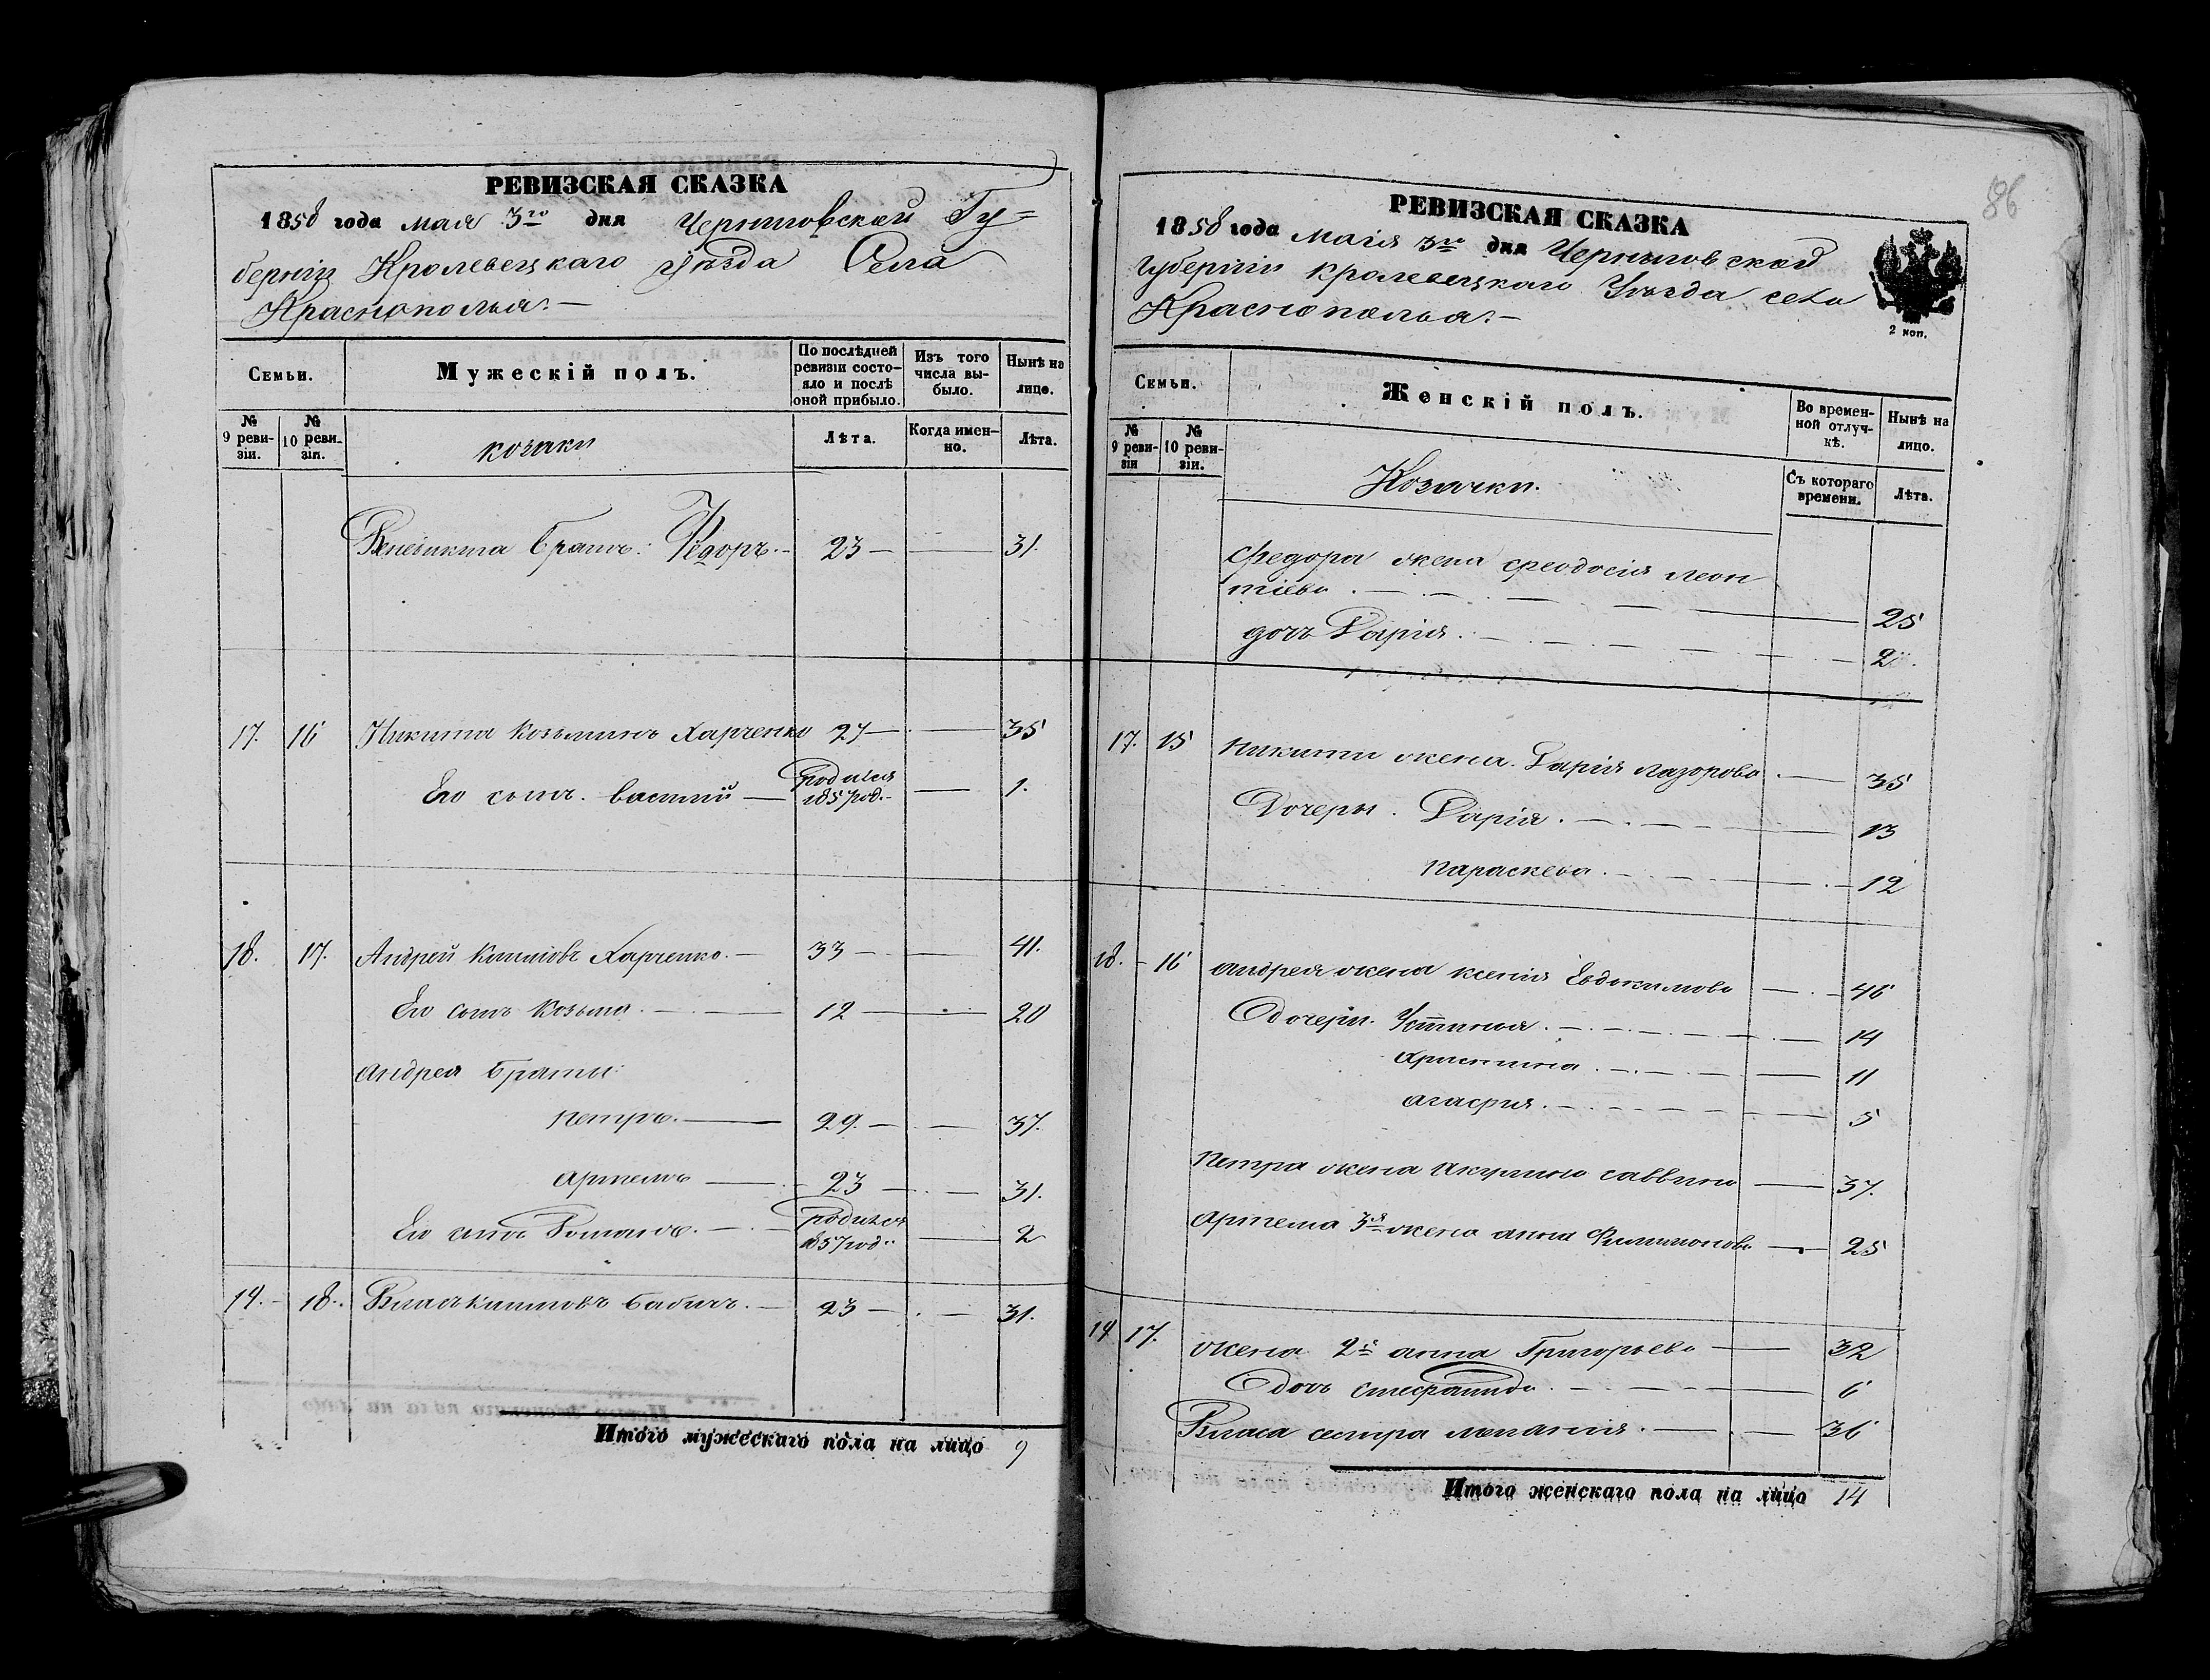 РЕВИЗСКАЯ СКАЗКА
1858 года мая 3го дня Черниговской Гу=
берніи Кролевецкаго уѣзда Села
Краснополья.
Семьи.
Мужескій полъ.
По послѣдней ревизіи состояло и послѣ оной прибыло.
Изъ того числа выбыло.
Нынѣ на лицо.
№ 9 ревизіи.
№ 10 ревизіи.
козаки
Лѣта.
Когда именно.
Лѣта.
братъ Федоръ. 23 — — 31.
17. 16 Никита Козьминъ Харченко 27 — — 35
Его сынъ Василій — родился 1857 год. — 1.
18. 17. Андрей Харченко. — 33 — — 41.
Его сынъ Козьма. — 12 — — 20
Андрея братья:
Петръ. — 29. — — 37.
Артемъ — 23 — — 31.
Его сынъ Романъ. — родился 1857 год. — 2
19. 18. Бабичъ. — 23 — — 31.
Итого мужескаго пола на лицо 9
86
РЕВИЗСКАЯ СКАЗКА
1858 года маія 3го дня Черниговской
Губерніи Кролевецкаго Уѣзда села
Краснополья.
2 коп.
Семьи.
Женскій полъ.
Во временной отлучкѣ.
Нынѣ на лицо.
№ 9 ревизіи
№ 10 ревизіи.
Козачки.
Съ котораго времени.
Лѣта.
Федора жена Феодосія Леон
тіева — 25
дочь Дарія. — 2
17. 15 Никиты жена Дарія Лазорова. — 35
Дочери. Дарія. — 13
Параскева. — 12
18. — 16 Андрея жена Ксенія Евдокимова — 46
дочери. Устинья. — 14
Христина. — 11
Агафія. — 5
Петра жена Акулина Саввина — 37.
Артема 3я жена Анна Филимонова — 25
19 17. жена 2я Анна Григорьева — 32
дочь Степанида. — 6
Власа сестра Меланія. — 36
Итого женскаго пола на лицо 14